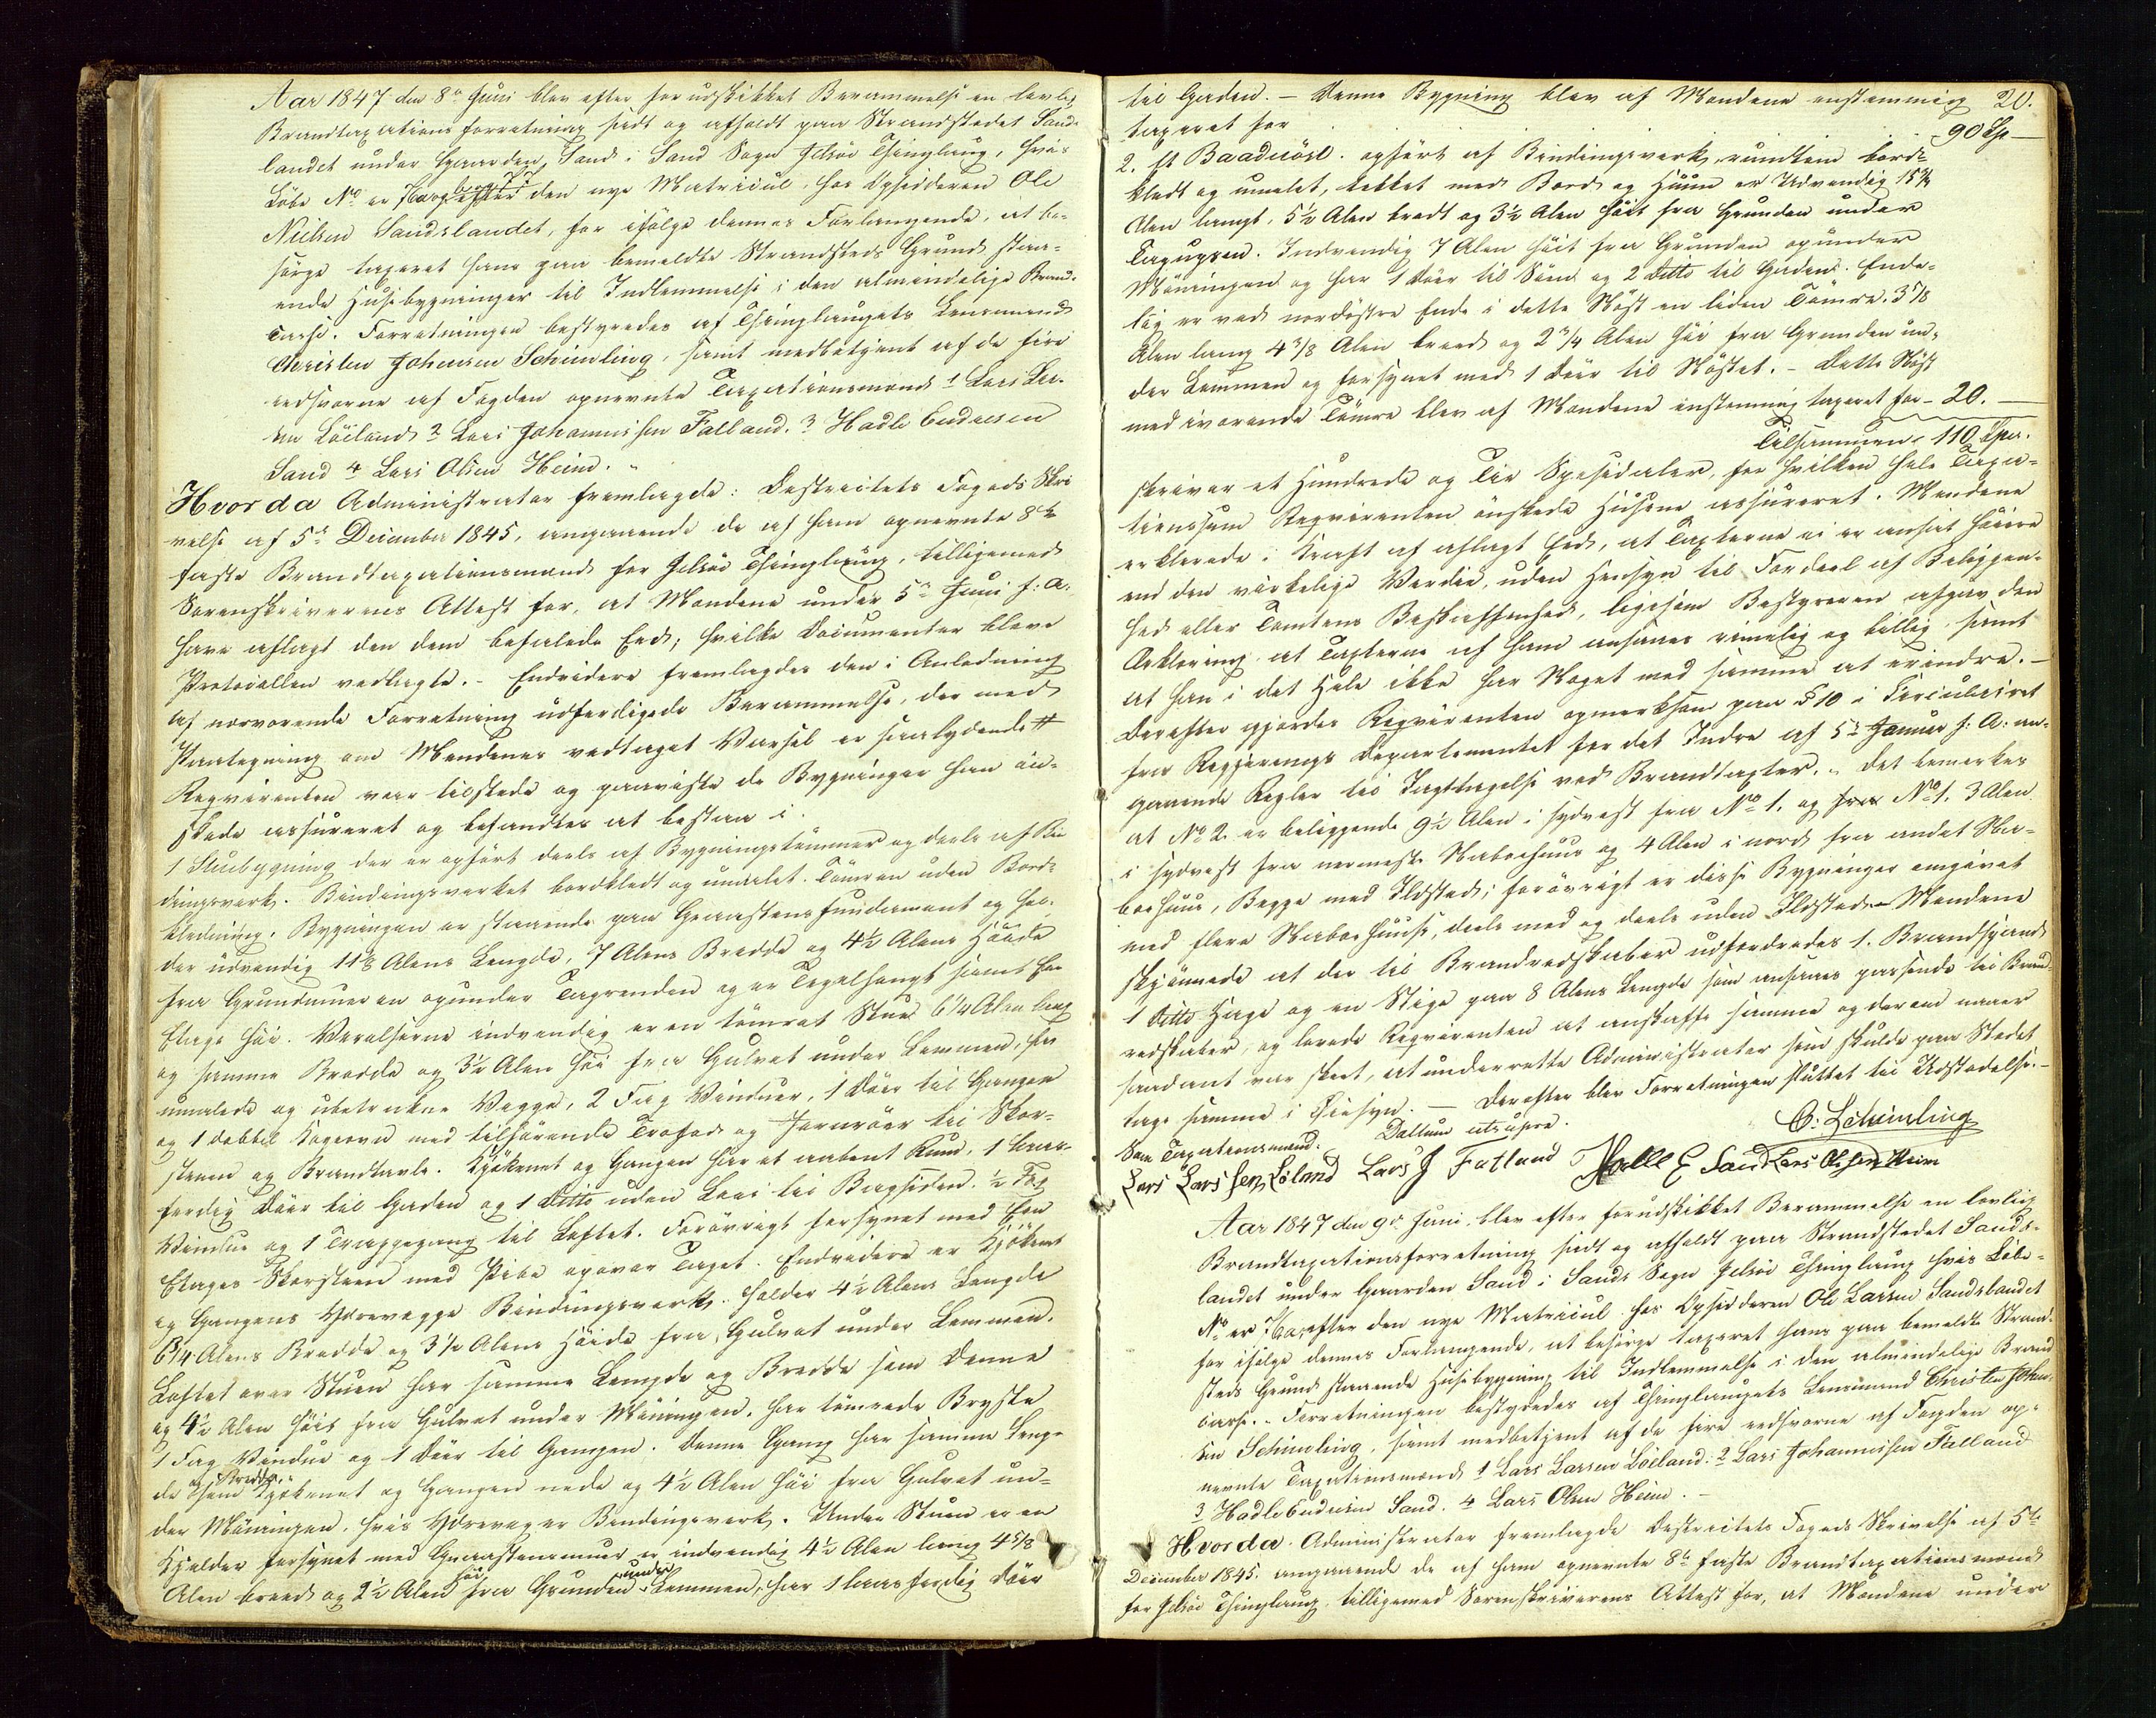 Aar 1847 den 8de Juni blev efter forudskikket Berammelse en lovlig
Brandtaxationsforretning sadt og afholdt paa Strandstedet Sands-
landet under Gaarden Sand i Sand Sogn Jelsøe Thinglaug, hvis
Løbe No er efter den nye Matricul, hos Opsidderen Ole
Nielsen Sandslandet, for ifølge dennes Forlangende, at be-
sørge taxeret hans paa bemeldte Strandsteds Grund staa-
ende Huusebygninger til Indlemmelse i den almindelige Brand-
casse. Forretningen bestyredes af Thinglaugets Lensmand
Christen Johnsen Schimling, samt medbetjent af de fire
eedsvorne af Fogden opnevnte Taxationsmænd 1 Lars Lar-
sen Löiland 2 Lars Johannissen Fatland. 3 Hadle Endresen
Sand 4 Lars Olsen Heim.
Hvorda Administrator fremlagde: Destrictets Fogeds Skri
velse af 5te December 1845, angaaende de af ham opnevnte 8te
faste Brandtaxationsmænd for Jelsøe Thinglaug, tilligemed
Sorenskriverens Attest for, at Mændene under 5te Juni f: A.
have aflagt den dem befalede Eed; hvilke Documenter bleve
Protocollen vedlagte. - Endvidere fremlagdes den i Anledning
af nærværende Forretning udferdigede Berammelse, der med
Paategning om Mændenes vedtaget Varsel er saalydende #
Reqvirenten var tilstede og paaviste de Bygninger han øn-
skede assureret og befandtes at bestaa i.
1 Stuebygning der er opført deels af Bygningstømmer og deels af Bin
dingsverk. Bindingsverket bordkledt og umalet. Tømren uden Bord-
kledning. Bygningen er staaende paa Graastens fundament og hol-
der udvendig 11 Alens Lengde, 7 Alens Bredde og 4½ Alens Høide
fra Grundmuren opunder Tagrenden og er Tegelhengt samt een
Etage høi. Verelserne indvendig er en tømret Stue 6¼ Alen lang
og samme Bredde og 3½ Alen høi fra Gulvet under Lemmen, har
umalede og ubetrukne Vegge, 2 Fag Vinduer, 1 Dør til Gangen
og 1 dobbel Kogeovn med tilhørende Trefod og Jernrøer til Skor-
stenen og Brandtavle. Kjøkenet og Gangen har et aabent Rum, 1 laas-
ferdig Dør til Gaden og 1 Ditto uden Laas til Bagsiden. ½ Fag
Vindue og 1 Trappegang til Loftet. Forøvrigt forsynet med Een
Etages Skorsteen med Pibe opover Taget. Endvidere er Kjøkenet
og Gangens Ydrevegge Bindingsverk. Holder 4½ Alens Lengde
6¼ Alens Bredde og 3½ Alens Høide fra Gulvet under Lemmen.
Loftet over Stuen har samme Lengde og Bredde som Denne
og 4½ Alen høit fra Gulvet under Møningen, har tømrede Bryste
1 Fag Vindue og 1 Dør til Gangen. Denne Gang har samme Leng-
de og Bredde som Kjøkenet og Gangen nede og 4½ Alen høi fra Gulvet un-
der Møningen, hvis Ydrevegge er Bindingsverk. Under Stuen er en
Kjelder forsynet med Graasteensmuur er indvendig 4½ Alen lang 4⅝
Alen breed og 2½ Alen høi fra Grunden under Lemmen, har 1 laasferdig Dør
til Gaden. - Denne Bygning blev af Mændene enstemmig 20.
taxeret for 90 Sp -
2. Et Baadnøst. opført af Bindingsverk, rundtom bord-
kledt og umalet, tekket med Bord og Huun er Udvendig 15¾
Alen langt, 5½ Alen bredt og 3½ Alen høit fra Grunden under
Tagugsen. Indvendig 7 Alen høit fra Grunden opunder
Møningen og har 1 Dør til Søen og 2 Ditto til Gaden. Ende-
lig er ved nordøstre Ende i dette Nøst en liden Tømre. 3⅞
Alen lang 4⅜ Alen breed og 2¾ Alen høi fra Grunden un-
der Lemmen og forsynet med 1 Dør til Nøstet. - Dette Nøst
med iverende Tømre blev af Mændene enstemmig taxeret for - 20. -
Tilsammen. 110 Spd.
skriver et Hundrede og Tie Spesidaler, for hvilken hele Taxa-
tionssum Reqvirenten ønskede Husene assureret. Mændene
erklerede i Kraft af aflagt Eed, at Taxterne ei er ansat høiere
end den virkelige Verdie, uden Hensyn til Fordeel af Beliggen-
hed eller Tomtens Beskaffenhed, ligesom Bestyreren afgav den
Erklering at Taxterne af ham ansees rimelig og billig, samt
at han i det Hele ikke har Noget med samme at erindre. -
Derefter gjordes Reqvirenten opmerksom paa § 10 i Circulairet
fra Regjerings Departementet for det Indre af 5te Januar f: A: an-
gaaende Regler til Iagttagelse ved Brandtaxter. - Det bemerkes
at No 2 er beliggende 9½ Alen i sydvest fra No 1. og fra No 1. 3 Alen
i sydvest fra nermeste Naboehuus og 4 Alen i nord fra andet Na-
boehuus, Begge med Ildsted; forøvrigt er disse Bygninger omgivet
med flere Naboehuuse, deels med og deels uden Ildsted. - Mændene
skjønnede at der til Brandredskaber udfordredes 1. Brandspand
1 Ditto Hage og en Stige paa 8 Alens Lengde som ansees passende til Brand-
redskaber, og lovede Reqvirenten at anskaffe samme og derom naar
saadant var skeet, at underrette Administrator som skulde paa Stedet
tage samme i Øiesyn. - Derefter blev Forretningen sluttet til Udstedelse. -
Dattum utsupra.
C: Schimling
Som Taxationsmænd.
Lars Larssen Löland Lars J Fatland Halle E Sand Lars Olssen Heim
Aar 1847 den 9de Juni, blev efter forudskikket Berammelse en lovlig
Brandtaxationsforretning sadt og afholdt paa Strandstedet Sands-
landet under Gaarden Sand i Sands Sogn Jelsøe Thinglaug hvis Løbe-
No er 76a, efter den nye Matricul hos Opsidderen Ole Larsen Sandslandet
for ifølge dennes Forlangende, at besørge taxeret hans paa bemeldte Strand-
steds Grund staaende Huusebygning til Indlemmelse i den almindelige Brand
casse. - Forretningen bestyredes af Thinglaugets Lensmand Christen John-
sen Schimling, samt medbetjent af de fire eedsvorne af Fogden op-
nevnte Taxationsmænd 1 Lars Larsen Löeland: 2 Lars Johannissen Fatland
3 Hadle Endresen Sand. 4 Lars Olsen Heim. -
Hvorda. Administrator fremlagde Destrictets Fogeds Skrivelse af 5te
December 1845. angaaende de af ham opnevnte 8te faste Brandtaxationsmænd
for Jelsøe Thinglaug tilligemed Sorenskriverens Attest for, at Mændene under